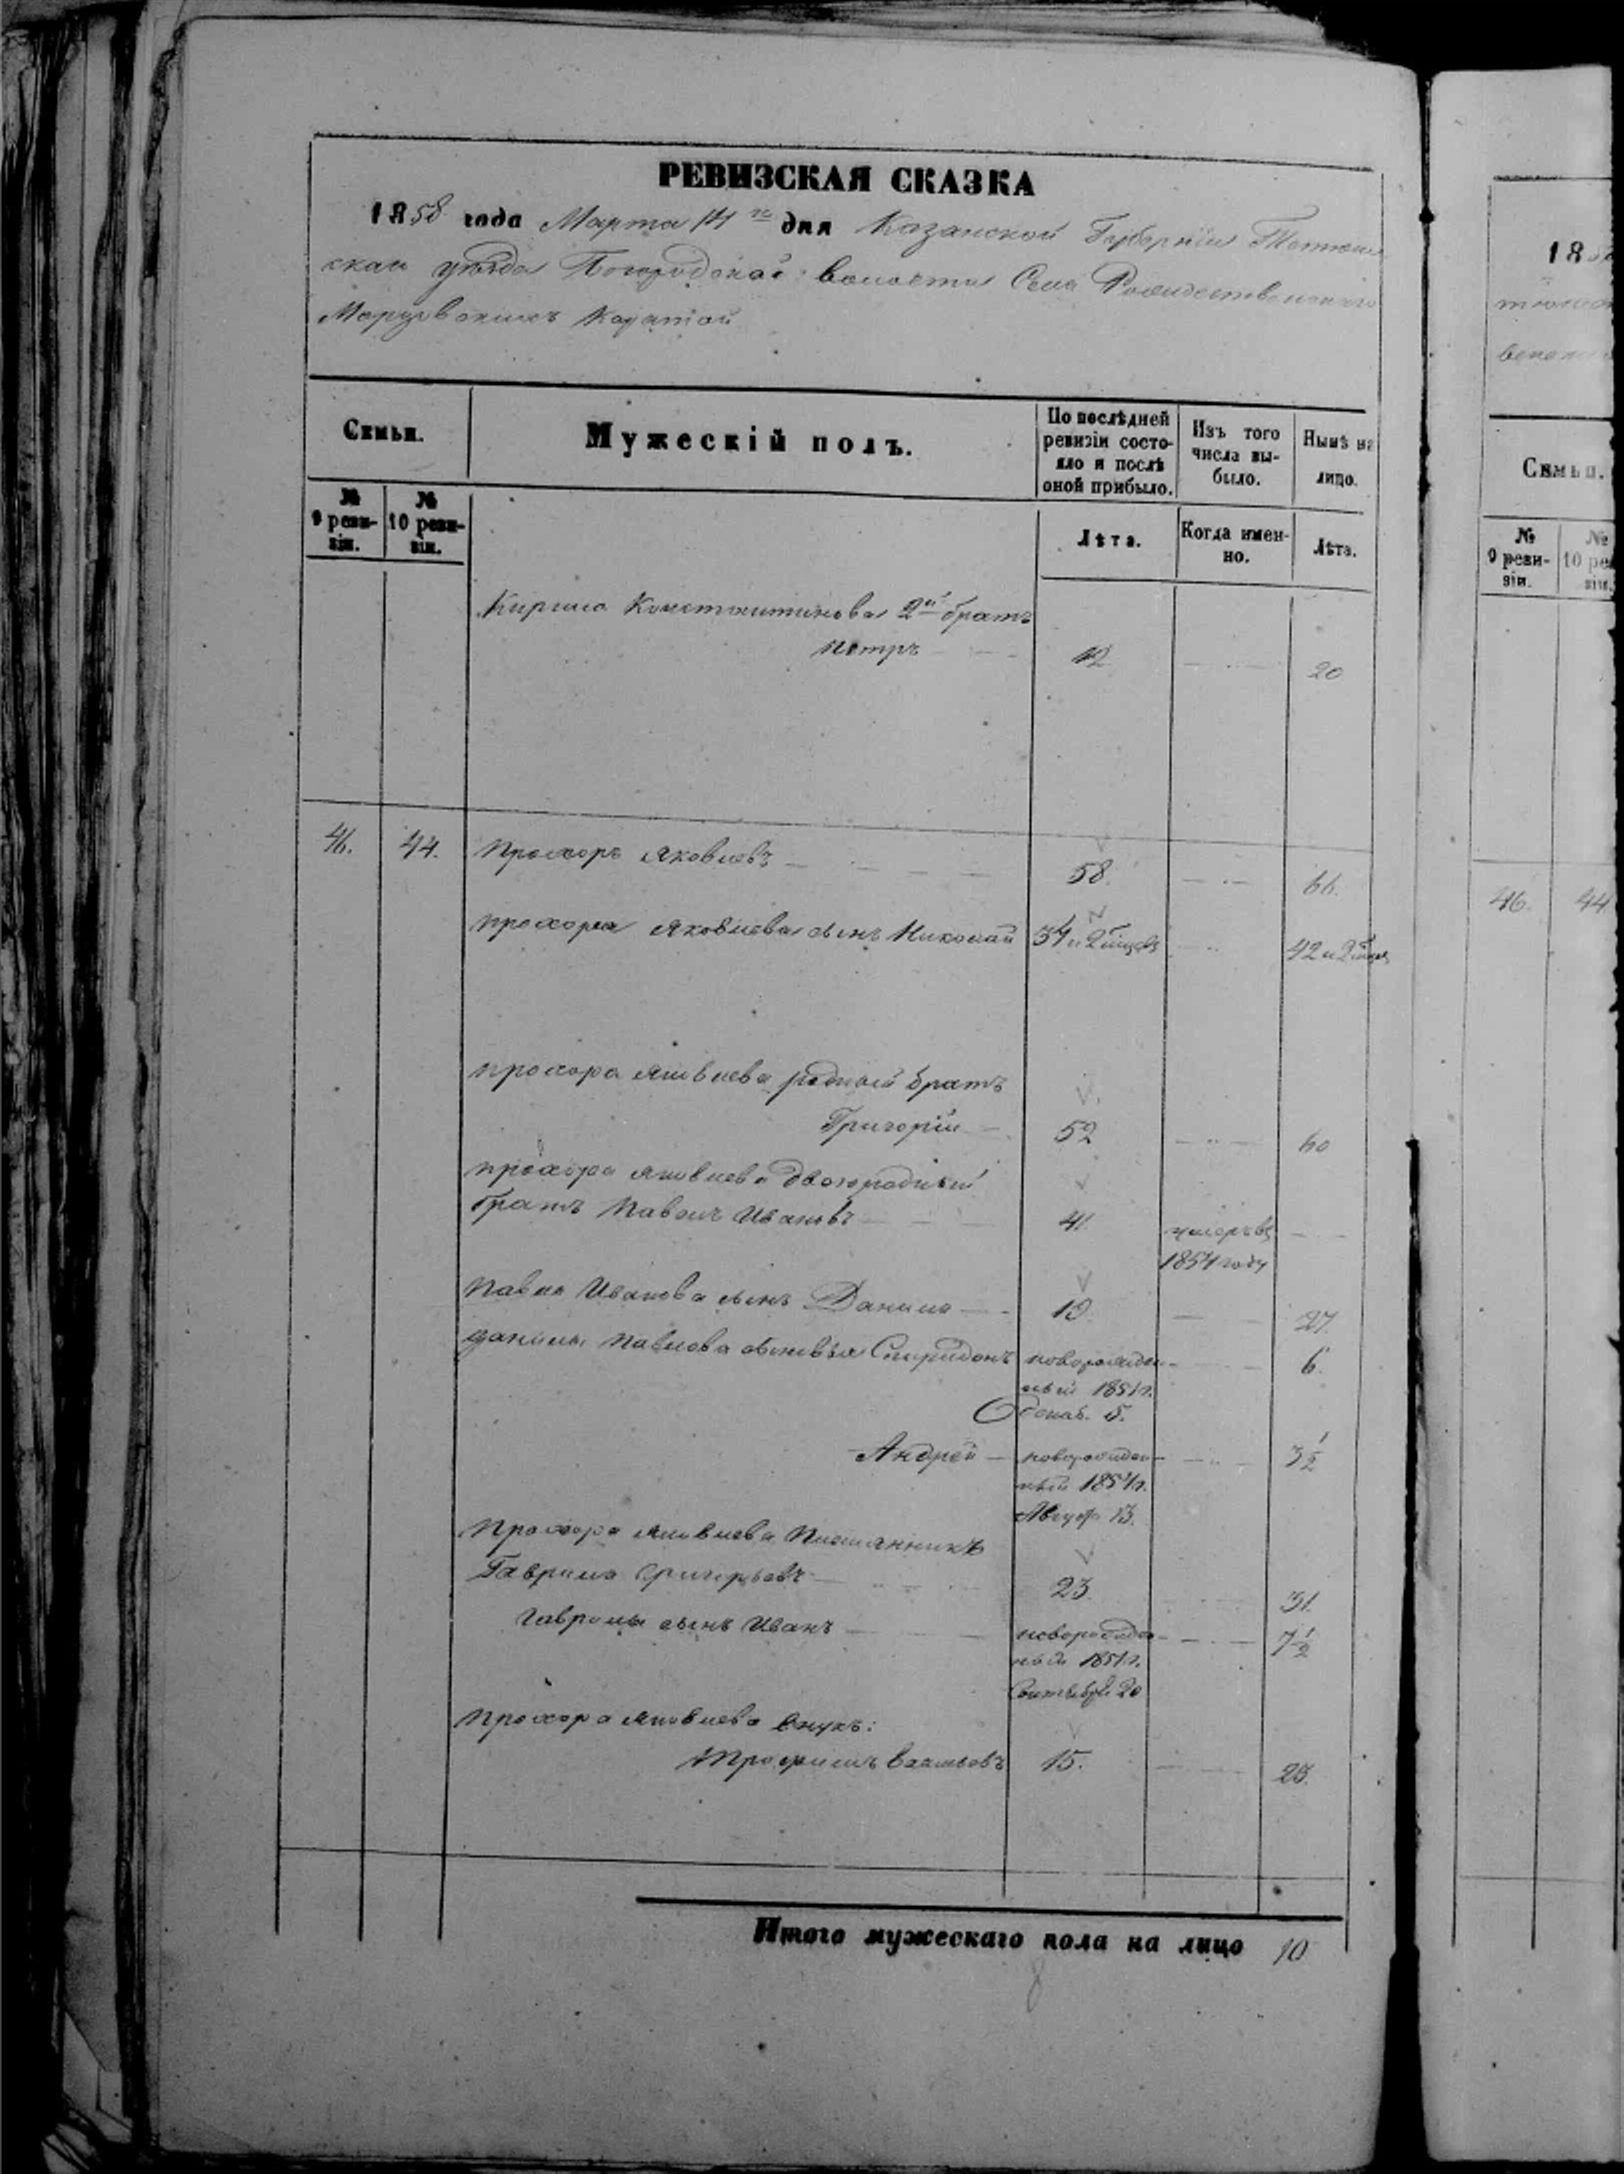 РЕВИЗСКАЯ СКАЗКА
1858 года Марта 14 го дня Казанской Губерніи Тетюш
скаго уѣзда волости Села Рождественскаго
Каратай
Семьи.
Мужескій полъ.
По послѣдней ревизіи состо-
яло и послѣ
оной прибыло.
Изъ того
числа вы-
было.
Нынѣ на
лицо.
№
9 реви-
зіи.
№
10 реви-
зіи.
Лѣта.
Когда имен-
но.
Лѣта.
Кирила Константинова 2й братъ
Петръ 12 20
46. 44. Прохоръ Яковлевъ 58. 66.
Прохора Яковлева сынъ Николай 34 и 2 42 и 2
Прохора Яковлева родной братъ
Григорій 52 60
Прохора Яковлева двоюродный
братъ Павелъ Ивановъ 41. умеръ въ
1854 году
Павла Иванова сынъ Данила 19. 27.
Данилы Павлова сыновья Спиридонъ новорожден- 6.
ный 1851 г.
декаб. 5.
Андрей новорожден- 3 1/2
ный 1854 г.
Август 13.
Прохора Яковлева племянникъ
Гаврила Григорьевъ 23 31.
Гаврилы сынъ Иванъ новорожден- 7 1/2
ный 1851 г.
Сентября 20
Прохора Яковлева внукъ:
Трофимъ 15. 23.
Итого мужескаго пола на лицо 10
18
Семьи.
№
9 реви-
зіи.
№
10 ре
зіи.
46. 44